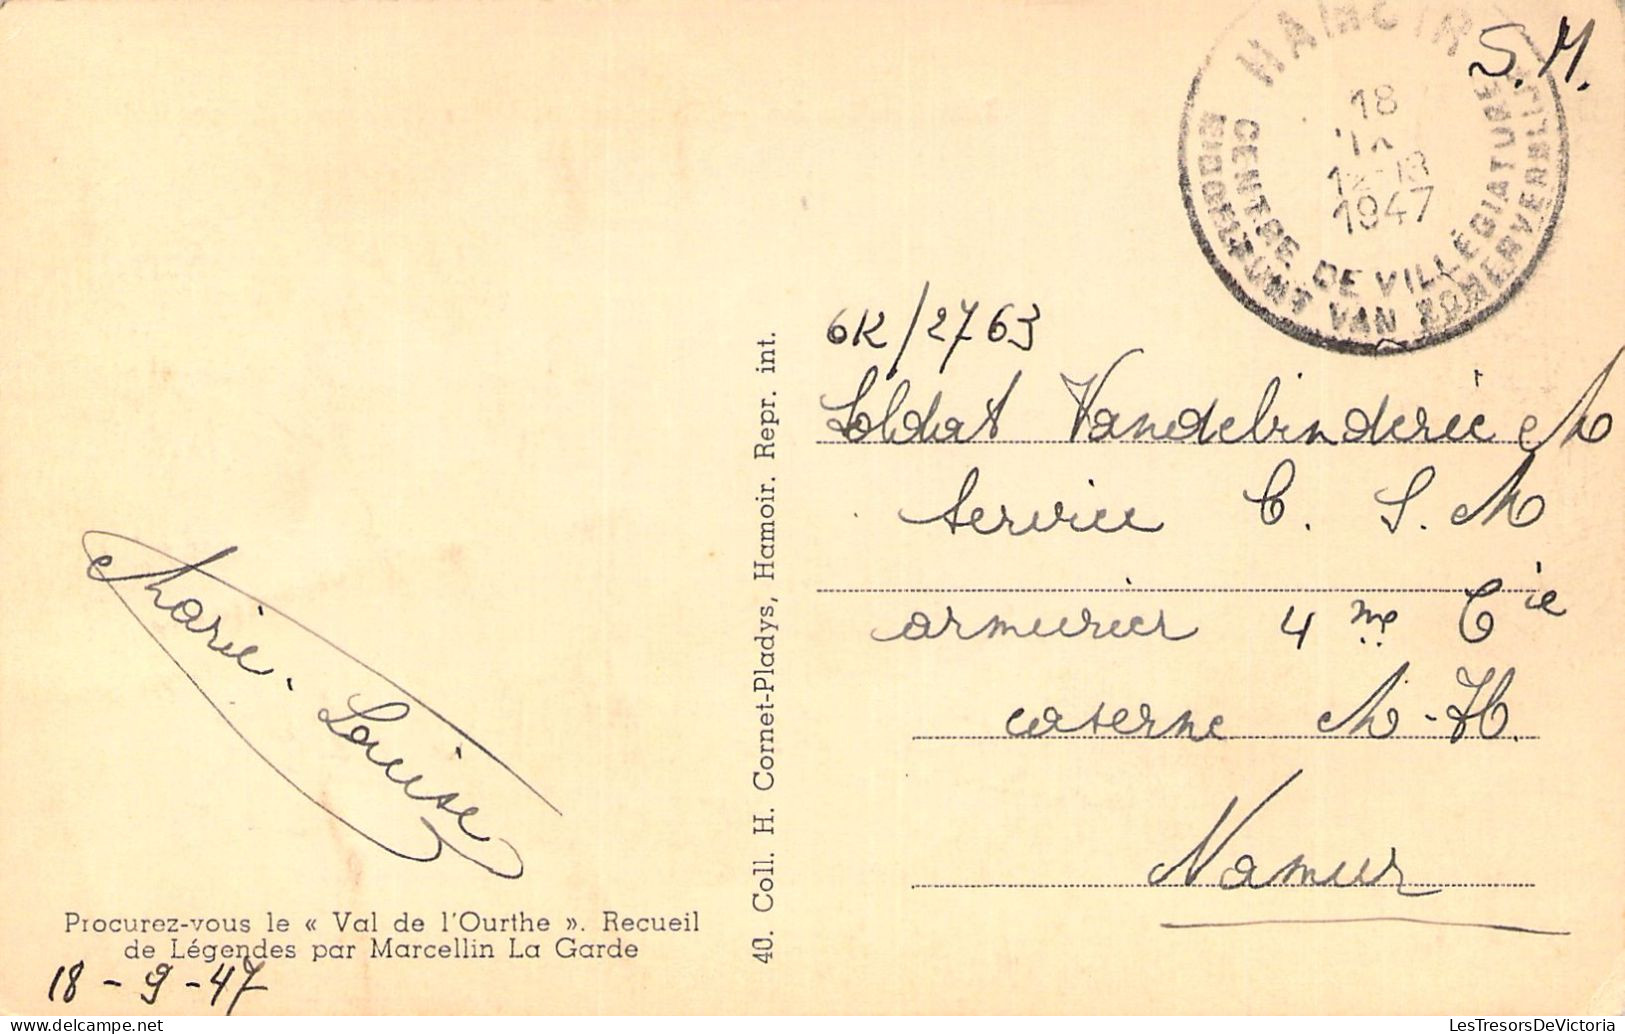 HAMOIR
18
1947
CENTRE DE VILLÉGIATURE
MIDDELPUNT VAN ZOMERVERBLIJF
S.M.
6K/2763
Soldat Vandebinderie M
Service C. S. M
armurier 4me Cie
caserne M-H.
Namur
Marie-Louise
Procurez-vous le « Val de l'Ourthe ». Recueil
de Légendes par Marcellin La Garde
18-9-47
40. Coll. H. Cornet-Pladys, Hamoir. Repr. int.
LesTresorsDeVictoria